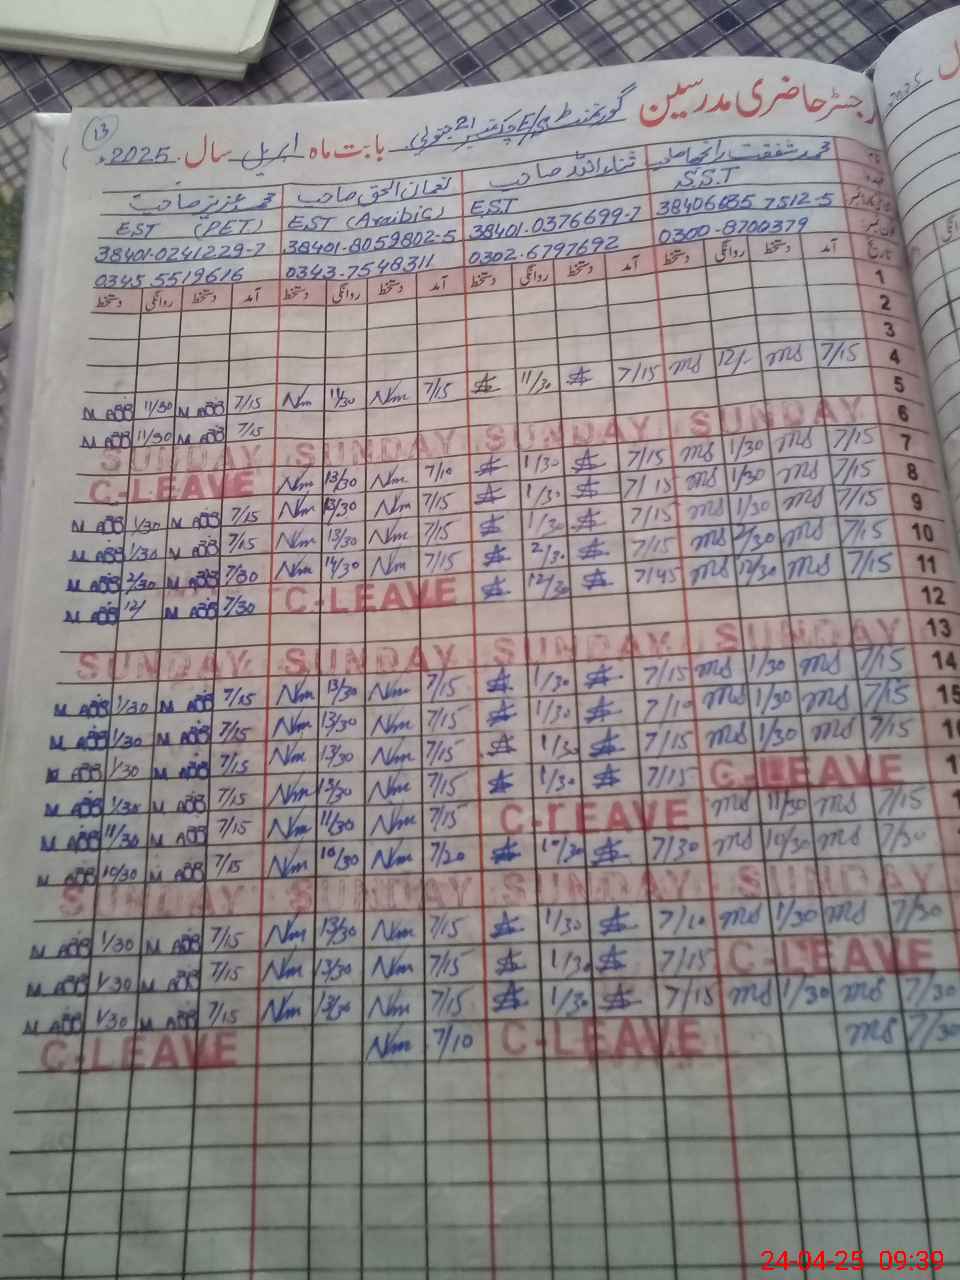 13
رجسٹر حاضری مدرسین گورنمنٹ E/S چک نمبر 21 جنوبی
بابت ماہ اپریل سال 2025ء
محمد شفقت رانجھا صاحب ثناء اللہ صاحب نعمان الحق صاحب محمد عزیز صاحب
S.S.T EST EST (Araibic) EST (PET)
38401-0376699-7 38401-8059802-5 38401-0241229-7
0300-8700379 0302-6797692 0343-7548311 0345-5519616
تاریخ آمد دستخط روانگی دستخط آمد دستخط روانگی دستخط آمد دستخط روانگی دستخط آمد دستخط روانگی دستخط
1
2
3
4 7/15 ms 12/- ms 7/15 11/30 7/15 Nm 11/30 Nm 7/15 11/30
5 7/15 11/30
6 SUNDAY SUNDAY SUNDAY SUNDAY
7 7/15 ms 1/30 ms 7/15 1/30 7/10 Nm 13/30 Nm C-LEAVE
8 7/15 ms 1/30 ms 7/15 1/30 7/15 Nm 13/30 Nm 7/15 1/30
9 7/15 ms 1/30 ms 7/15 1/30 7/15 Nm 13/30 Nm 7/15 1/30
10 7/15 ms 2/30 ms 7/15 2/30 7/15 Nm 14/30 Nm 7/30 2/30
11 7/15 ms 12/30 ms 7/45 12/30 C-LEAVE 7/30 12/
12
13 SUNDAY SUNDAY SUNDAY SUNDAY
14 7/15 ms 1/30 ms 7/15 1/30 7/15 Nm 13/30 Nm 7/15 1/30
15 7/15 ms 1/30 ms 7/10 1/30 7/15 Nm 13/30 Nm 7/15 1/30
7/15 ms 1/30 ms 7/15 1/30 7/15 Nm 13/30 Nm 7/15 1/30
C-LEAVE 7/15 1/30 7/15 Nm 13/30 Nm 7/15 1/30
7/15 ms 11/30 ms C-LEAVE 7/15 Nm 11/30 Nm 7/15 11/30
7/30 ms 10/30 ms 7/30 10/30 7/20 Nm 10/30 Nm 7/15 10/30
SUNDAY SUNDAY SUNDAY SUNDAY
7/30 ms 1/30 ms 7/10 1/30 7/15 Nm 13/30 Nm 7/15 1/30
C-LEAVE 7/15 1/30 7/15 Nm 13/30 Nm 7/15 1/30
7/30 ms 1/30 ms 7/15 1/30 7/15 Nm 13/30 Nm 7/15 1/30
7/30 ms C-LEAVE 7/10 Nm C-LEAVE
24-04-25 09:39